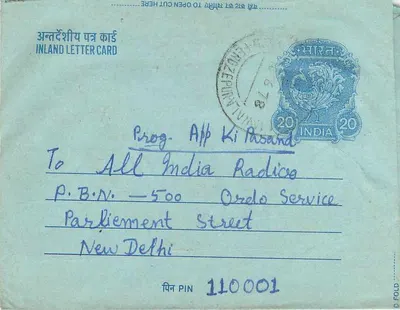 यहाँ काट कर खोलिए TO OPEN CUT HERE
अन्तर्देशीय पत्र कार्ड
INLAND LETTER CARD
भारत
20 INDIA 20
FEROZEPUR
Prog. App Ki Pasand
To All India Radioo
P.B.N. — 500 Ordo Service
Parliement Street
New Delhi
पिन PIN 110001
FOLD